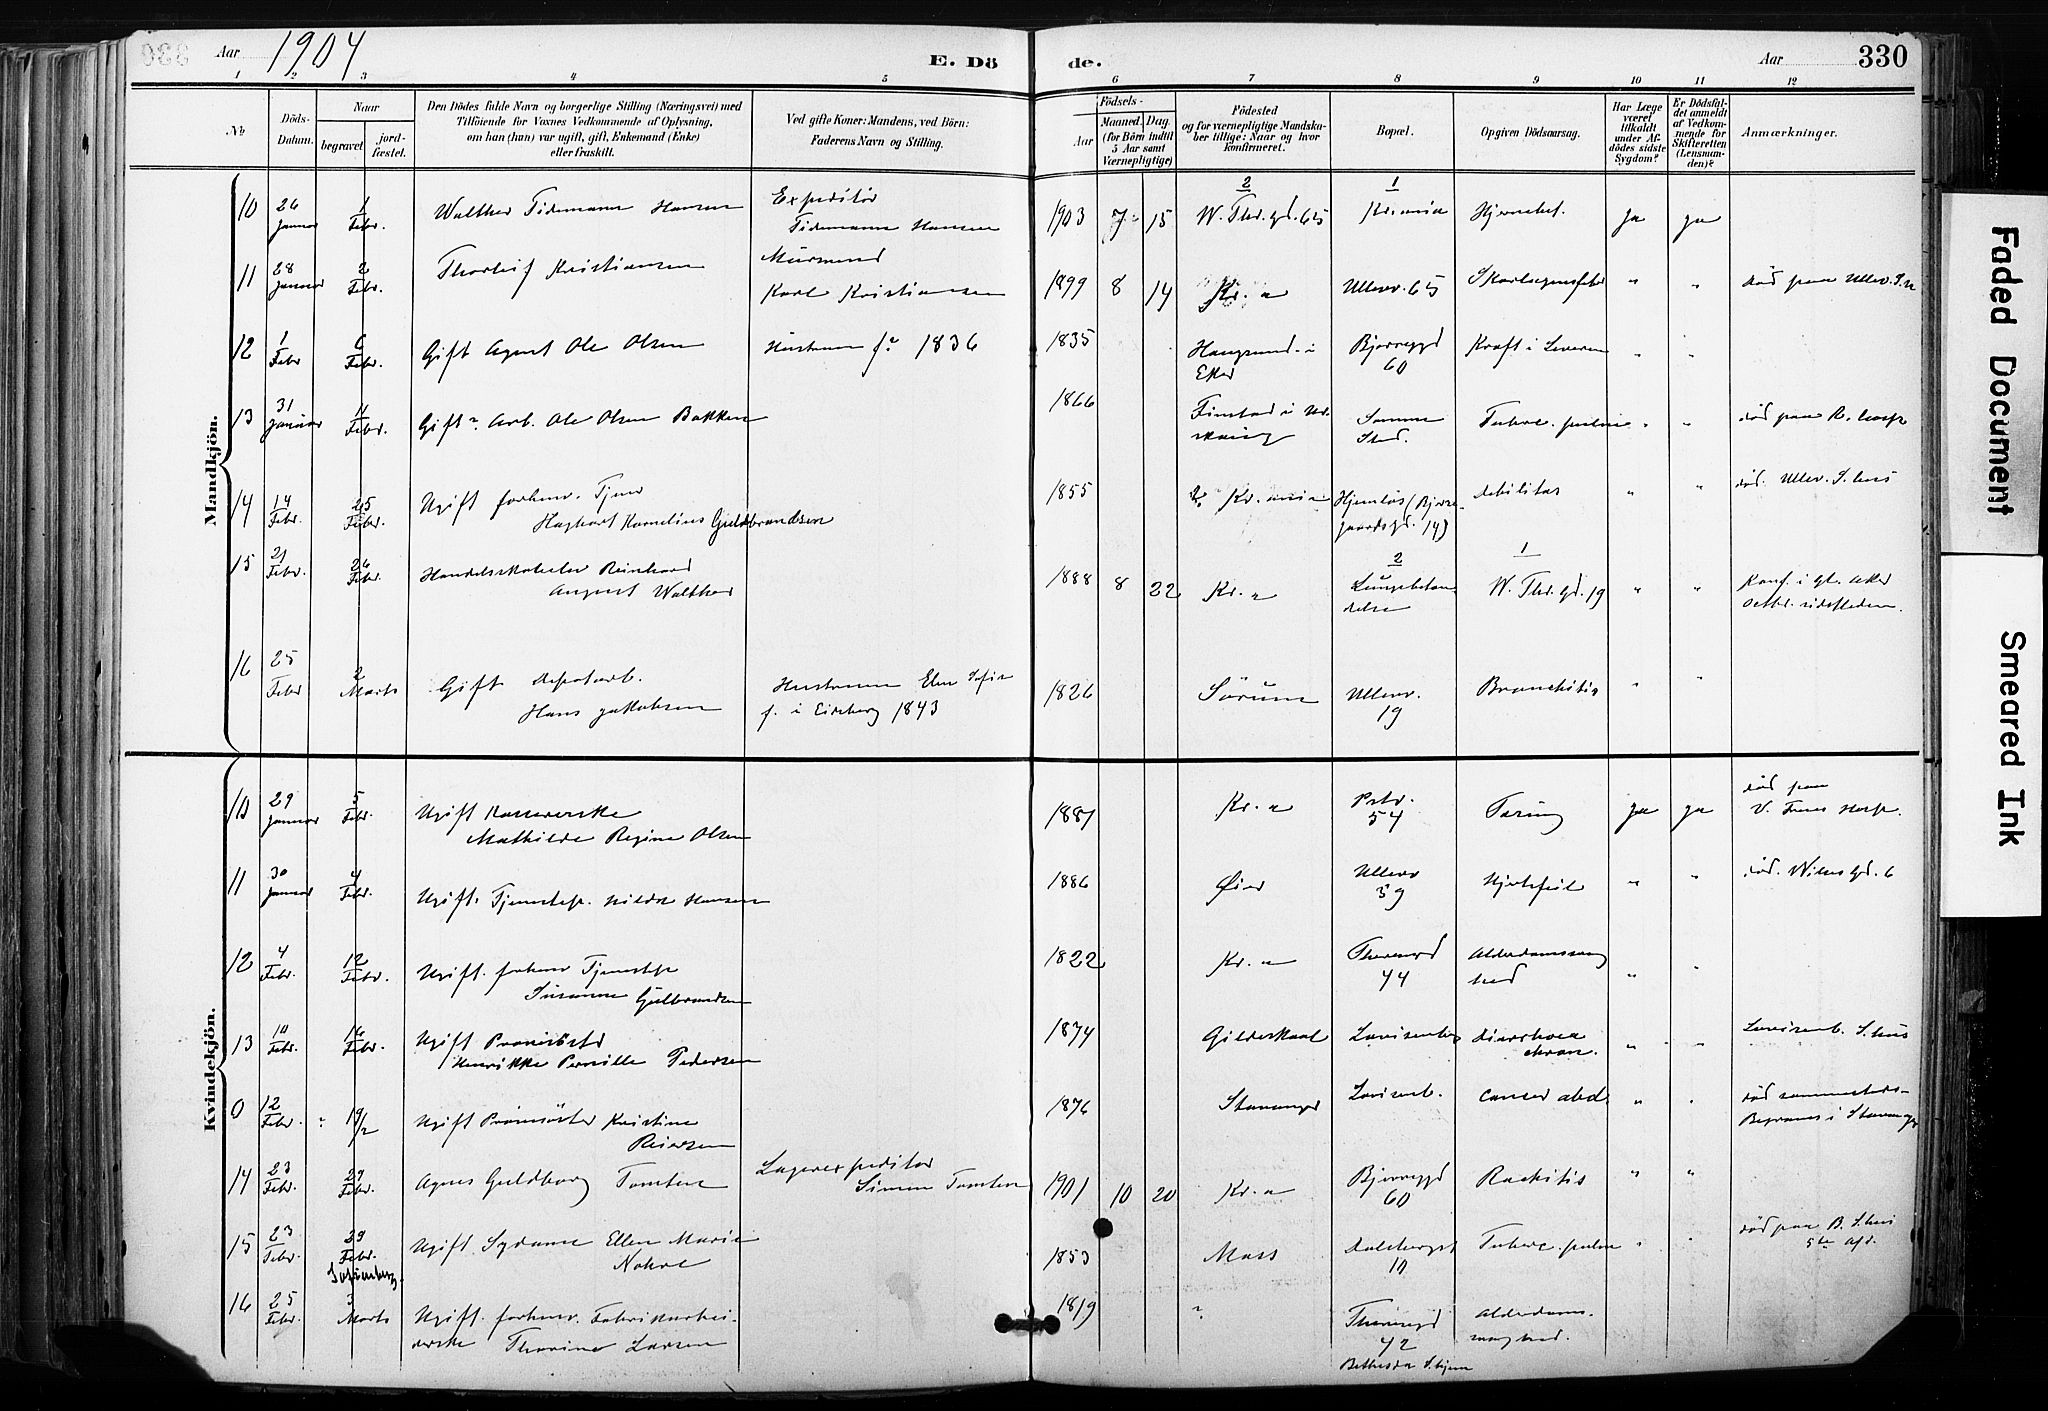 330
Aar 1904
E. Dö de.
Aar 330
1 2 3 4 5 6 7 8 9 10 11 12
№
Döds-Datum.
Naar
begravet
jord-fæstet.
Den Dödes fulde Navn og borgerlige Stilling (Næringsvei) med
Tilföiende for Voxnes Vedkommende af Oplysning,
om han (hun) var ugift, gift, Enkemand (Enke)
eller fraskilt.
Ved gifte Koner: Mandens, ved Börn:
Faderens Navn og Stilling.
Födsels-
Aar
Maaned. Dag.
(for Börn indtil
5 Aar samt
Værnepligtige)
Födested
og for værnepligtige Mandska-
ber tillige: Naar og hvor
konfirmeret.
Bopæl.
Opgiven Dödsaarsag.
Har Læge
været
tilkaldt
under Af-
dödes sidste
Sygdom?
Er Dödsfal-
det anmeldt
af Vedkom-
mende for
Skifteretten
(Lensman-
den)?
Anmærkninger.
Mandkjön.
10 26 Januar 1 Febr. Walther Tidemann Hansen Expeditör Tidemann Hansen 1903 7 15 2 W. Thr. gd. 65 1 Kr.ania Ja ja
11 28 Januar 2 Febr. Thorleif Kristiansen Murmand Karl Kristiansen 1899 8 14 Kr.a Ullevv. 65 Skarlagensfeber " " död paa Ullev. S.
12 1 Febr 6 Febr. Gift Agent Ole Olsen Hustruen f. 1836 1835 Haugsund i Eker Bjerregd 60 Kræft i Leveren " "
13 31 Januar 11 Febr. Gift Arb. Ole Olsen Bakken 1866 Samme Sted. Tuberc. pulm " " död paa R. hosp
14 14 Febr. 25 Febr. Ugift forhenv. Tjener
Hagbart Kornelius Guldbrandsen 1855 Kr.ania Hjemlös (Bjerregaardsgd. 14) debilitas " " död. Ullev. S.hus
15 21 Febr. 26 Febr. Handelsskoleelev Reinhard
August Walther 1888 8 22 Kr.a 2 Lungebetændelse 1 W. Thr. gd. 19 " " Konf. i gl. Aker
Octbr. sidstleden.
16 25 Febr 2 Marts Gift Depotarb.
Hans Jakobsen Hustruen Elen Sofie
f. i Eidsberg 1843 1826 Sörum Ullevv. 19 Bronchitis " "
Kvindekjön.
10 29 Januar 5 Febr. Ugift
Mathilde Regine Olsen 1881 Kr.a 54 Ja ja död paa
11 30 Januar 4 Febr. Ugift. Tjenestep. Hilda Hansen 1886 Öier Ullevv 39 Hjertefeil " " död.
12 4 Febr. 12 Febr. Ugift. forhenv Tjenestep
Susanne Gulbrandsen 1822 Kr.a Theresegd 44 Alderdomssvaghed " "
13 10 Febr. 16 Febr. Ugift Prövesöster
Henrikke Pernille Pedersen 1874 Gildeskaal Lovisenberg diarrhoea chron. " " Lovisenb. S.hus
0 12 Febr. " 19/2 Ugift Prövesöster Kristine
Reiersen 1876 Stavanger Lovisenb. Cancer abd. " " död sammesteds-
Begraves i Stavanger
14 23 Febr. 29 Febr. Agnes Guldborg Tomten Lagerexpeditör
Simen Tomten 1901 10 20 Kr.a Bjerregd 60 Rachitis " "
15 23 Febr. 29 Febr. Ugift Sydame Ellen Marie 1853 Moss Dalsbergst 10 Tuberc. pulm " " död paa B. S.hus
5te Afd.
16 25 Febr. 3 Marts Ugift. forhenv. Fabrikarbei-
derske Thorine Larsen 1819 " Theresegd 42 Alderdomssvaghed.
Bethesda S.hjem
Faded Document
Smeared Ink